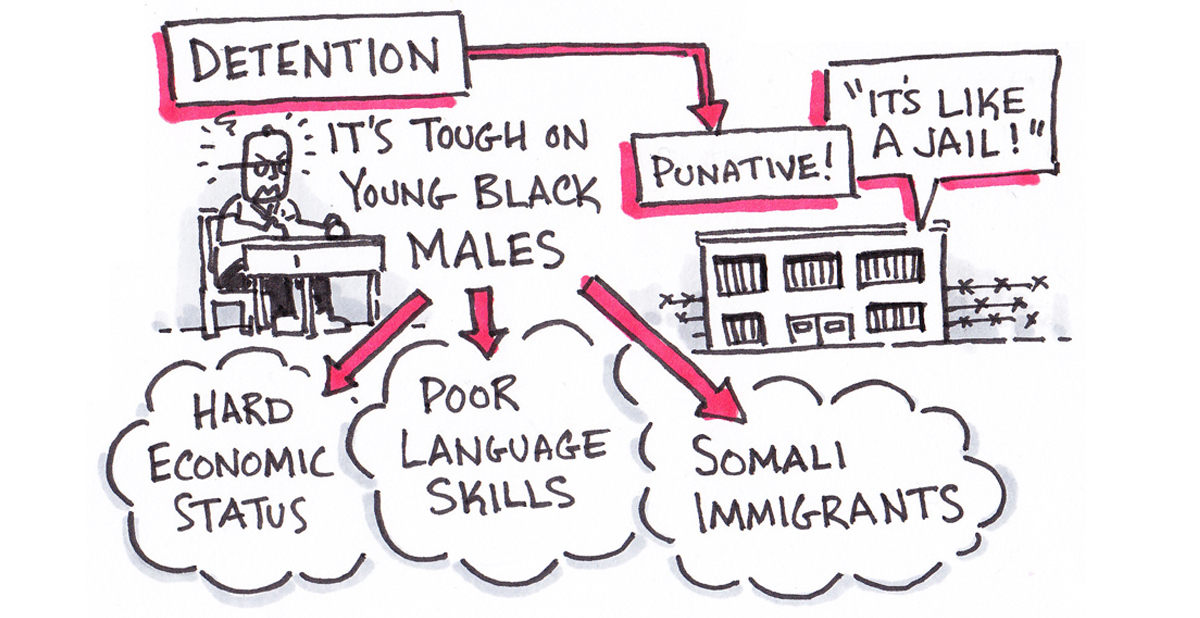 DETENTION
IT'S TOUGH ON
YOUNG BLACK
MALES
PUNATIVE!
"IT'S LIKE
A JAIL!"
HARD
ECONOMIC
STATUS
POOR
LANGUAGE
SKILLS
SOMALI
IMMIGRANTS